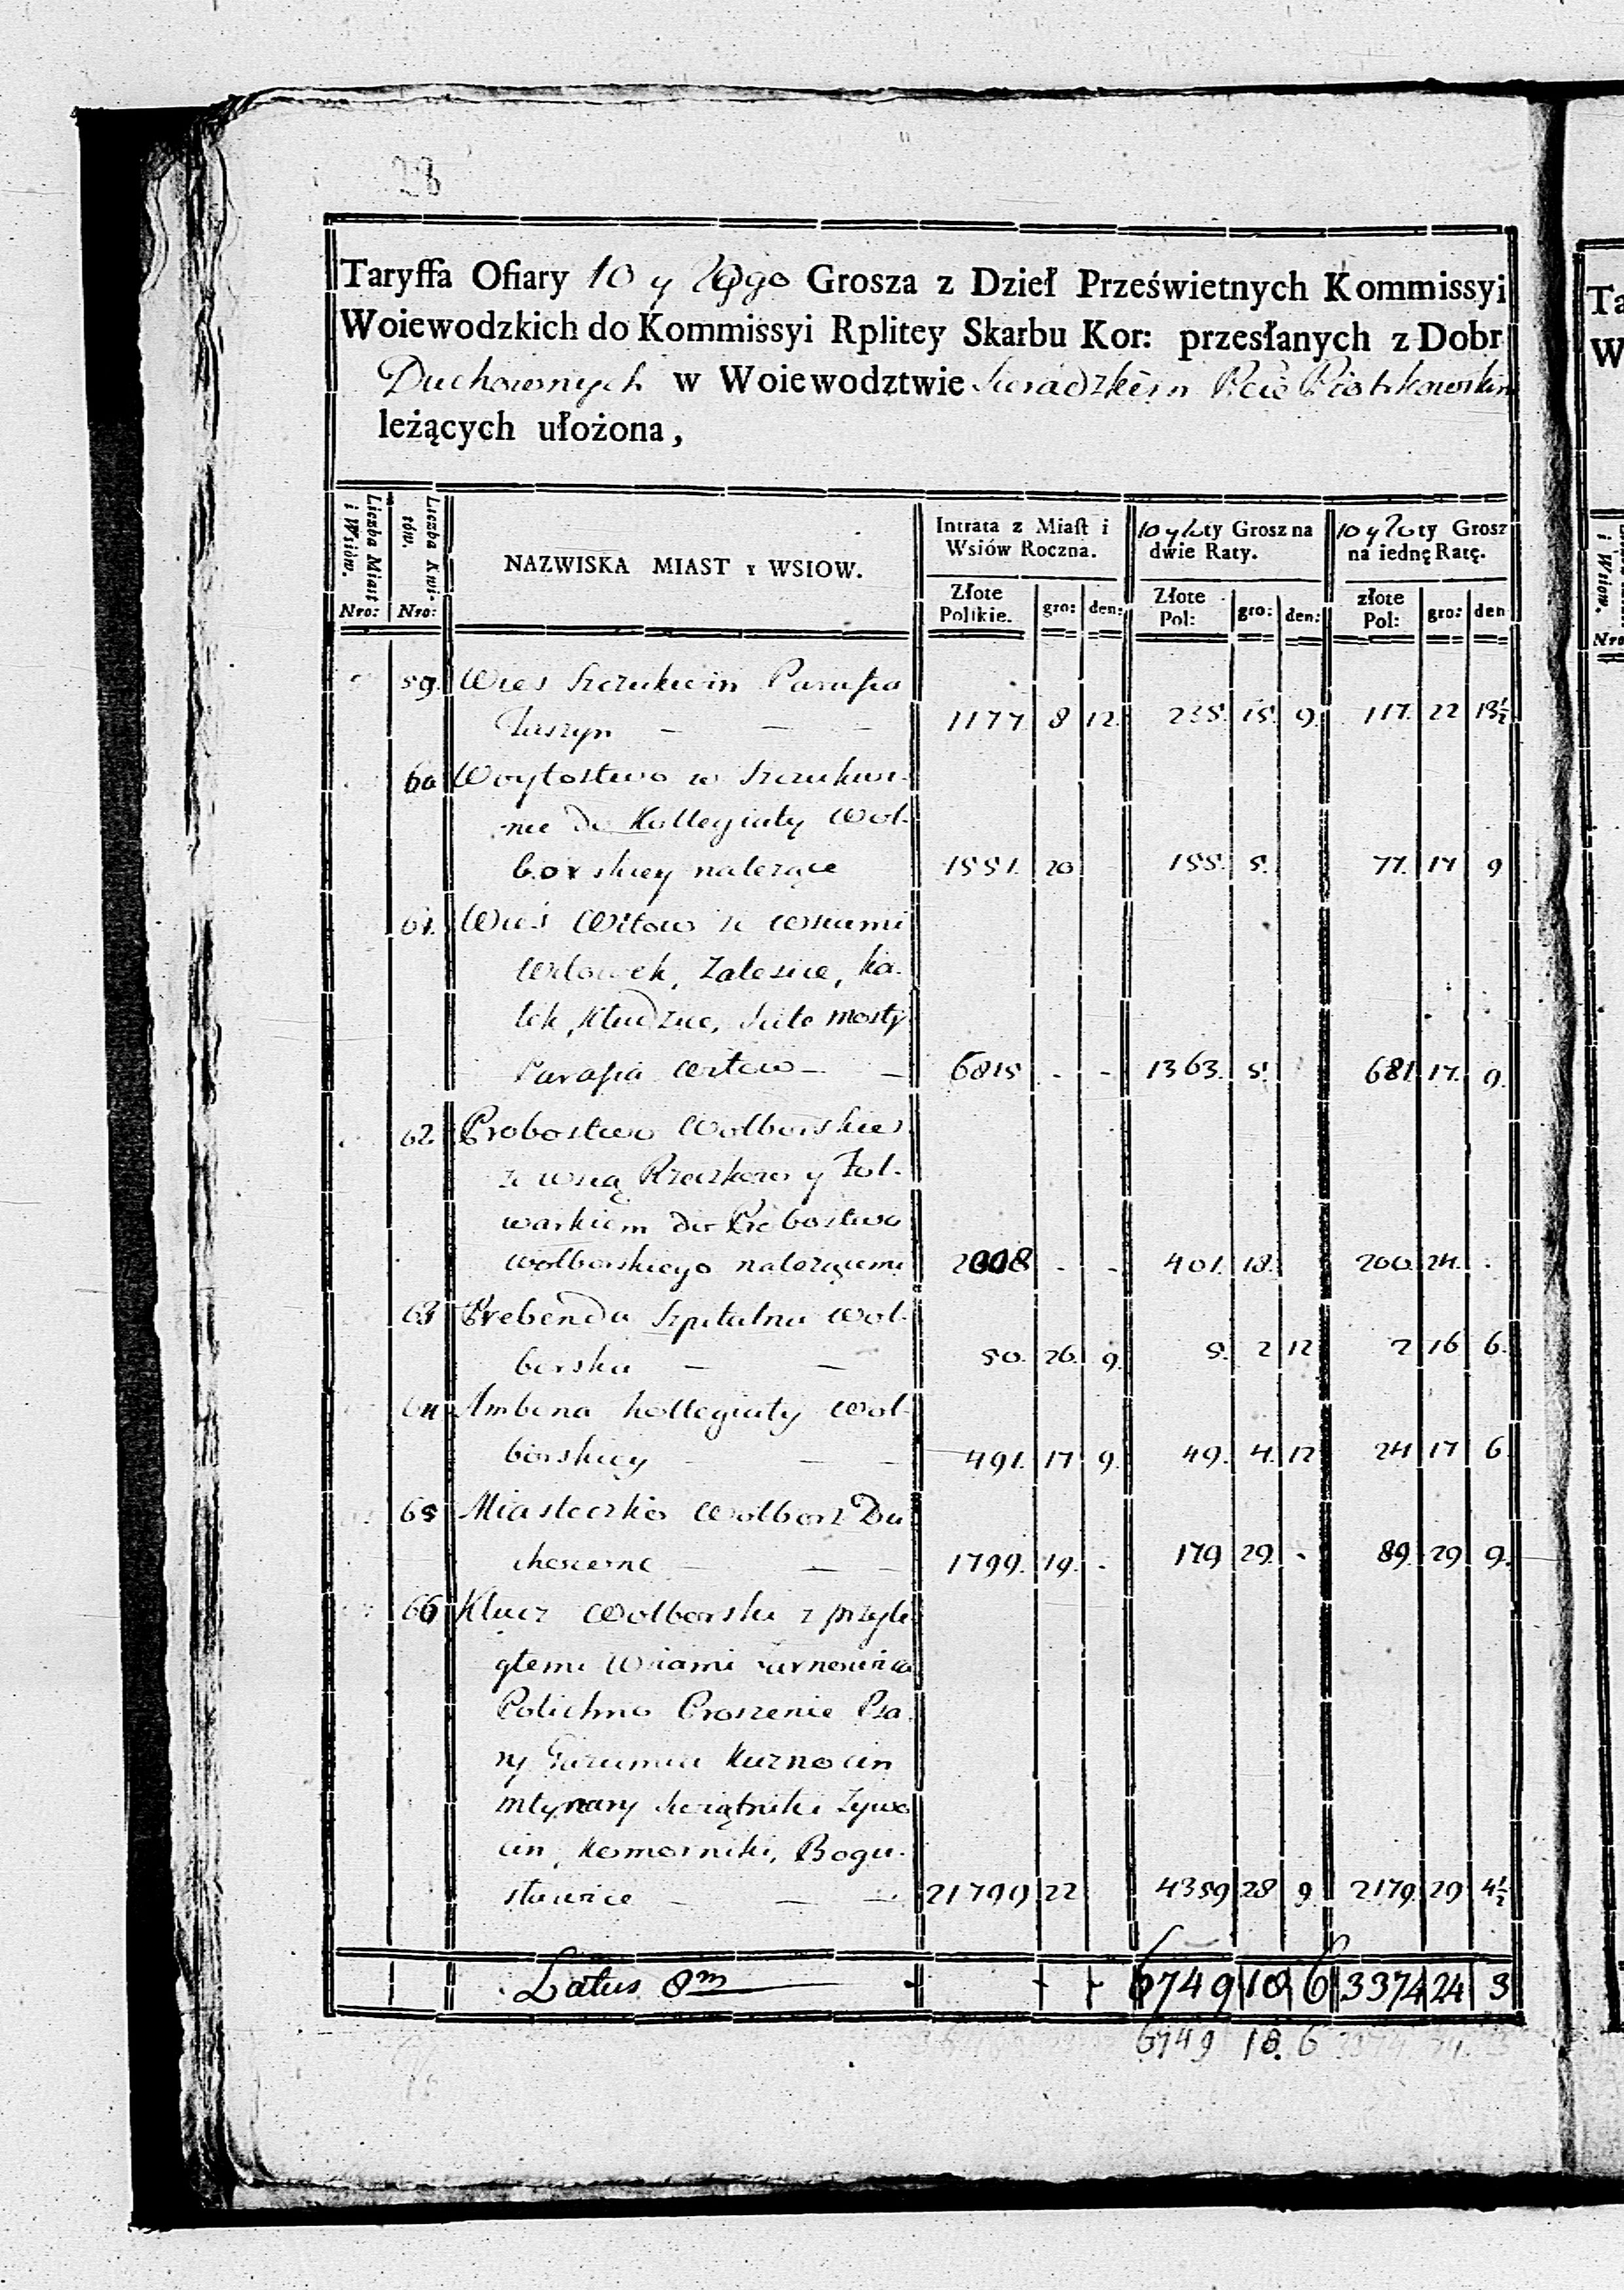 28
Taryffa Ofiary 10 y 20go Grosza z Dzieł Prześwietnych Kommissyi
Woiewodzkich do Kommissyi Rplitey Skarbu Kor: przesłanych z Dobr
Duchownych w Woiewodztwie Sieradzkim Pcie Piotrkowskim
leżących ułożona,
Liczba Miast i Wsiów. Nro:
Liczba Kwitów. Nro:
NAZWISKA MIAST Y WSIOW.
Intrata z Miast i Wsiów Roczna.
10 y 20ty Grosz na dwie Raty.
10 y 20ty Grosz na iednę Ratę.
Złote Polskie. gro: den: Złote Pol: gro: den: złote Pol: gro: den
59. Wieś Szczukwin Parafia
Tuszyn — — 1177 8 12. 235. 15. 9. 117. 22 13½
60 Woytostwo w Szczukwi-
nie do Kollegiaty Wol-
borskiey należące 1551. 20 155. 5. 77. 17 9
61. Wieś Witow ze wsiami
Witowek, Zalesice, Ka-
łek, Kłudzice,
Parafia Witow — — 6815 - - 1363. 5. 681. 17. 9.
62 Probostwo Wolborskie
z wsią y Fol-
warkiem do Probostwa
Wolborskiego należącemi 2008 - - 401. 18. 200. 24. -
63 Prebenda Szpitalna Wol-
borska — — 50. 26. 9. 5. 2 12 2 16 6.
64 Ambona Kollegiaty Wol-
borskiey — — 491. 17 9. 49. 4. 12 24 17 6.
65 Miasteczko Wolborz Du
chowne — — 1799. 19. - 179 29. - 89. 29 9.
66 Klucz Wolborski z przyle
głemi Wsiami Żarnowica
Polichno Proszenie Psa-
ry Kuznocin
Młynary Swiątniki Żywo
cin, Komorniki, Bogu-
sławice — — 21799 22 4359 28 9. 2179. 29 4½
Latus 8m 6749 18 6 3374 24 3
6749 18. 6 3374. 24. 3